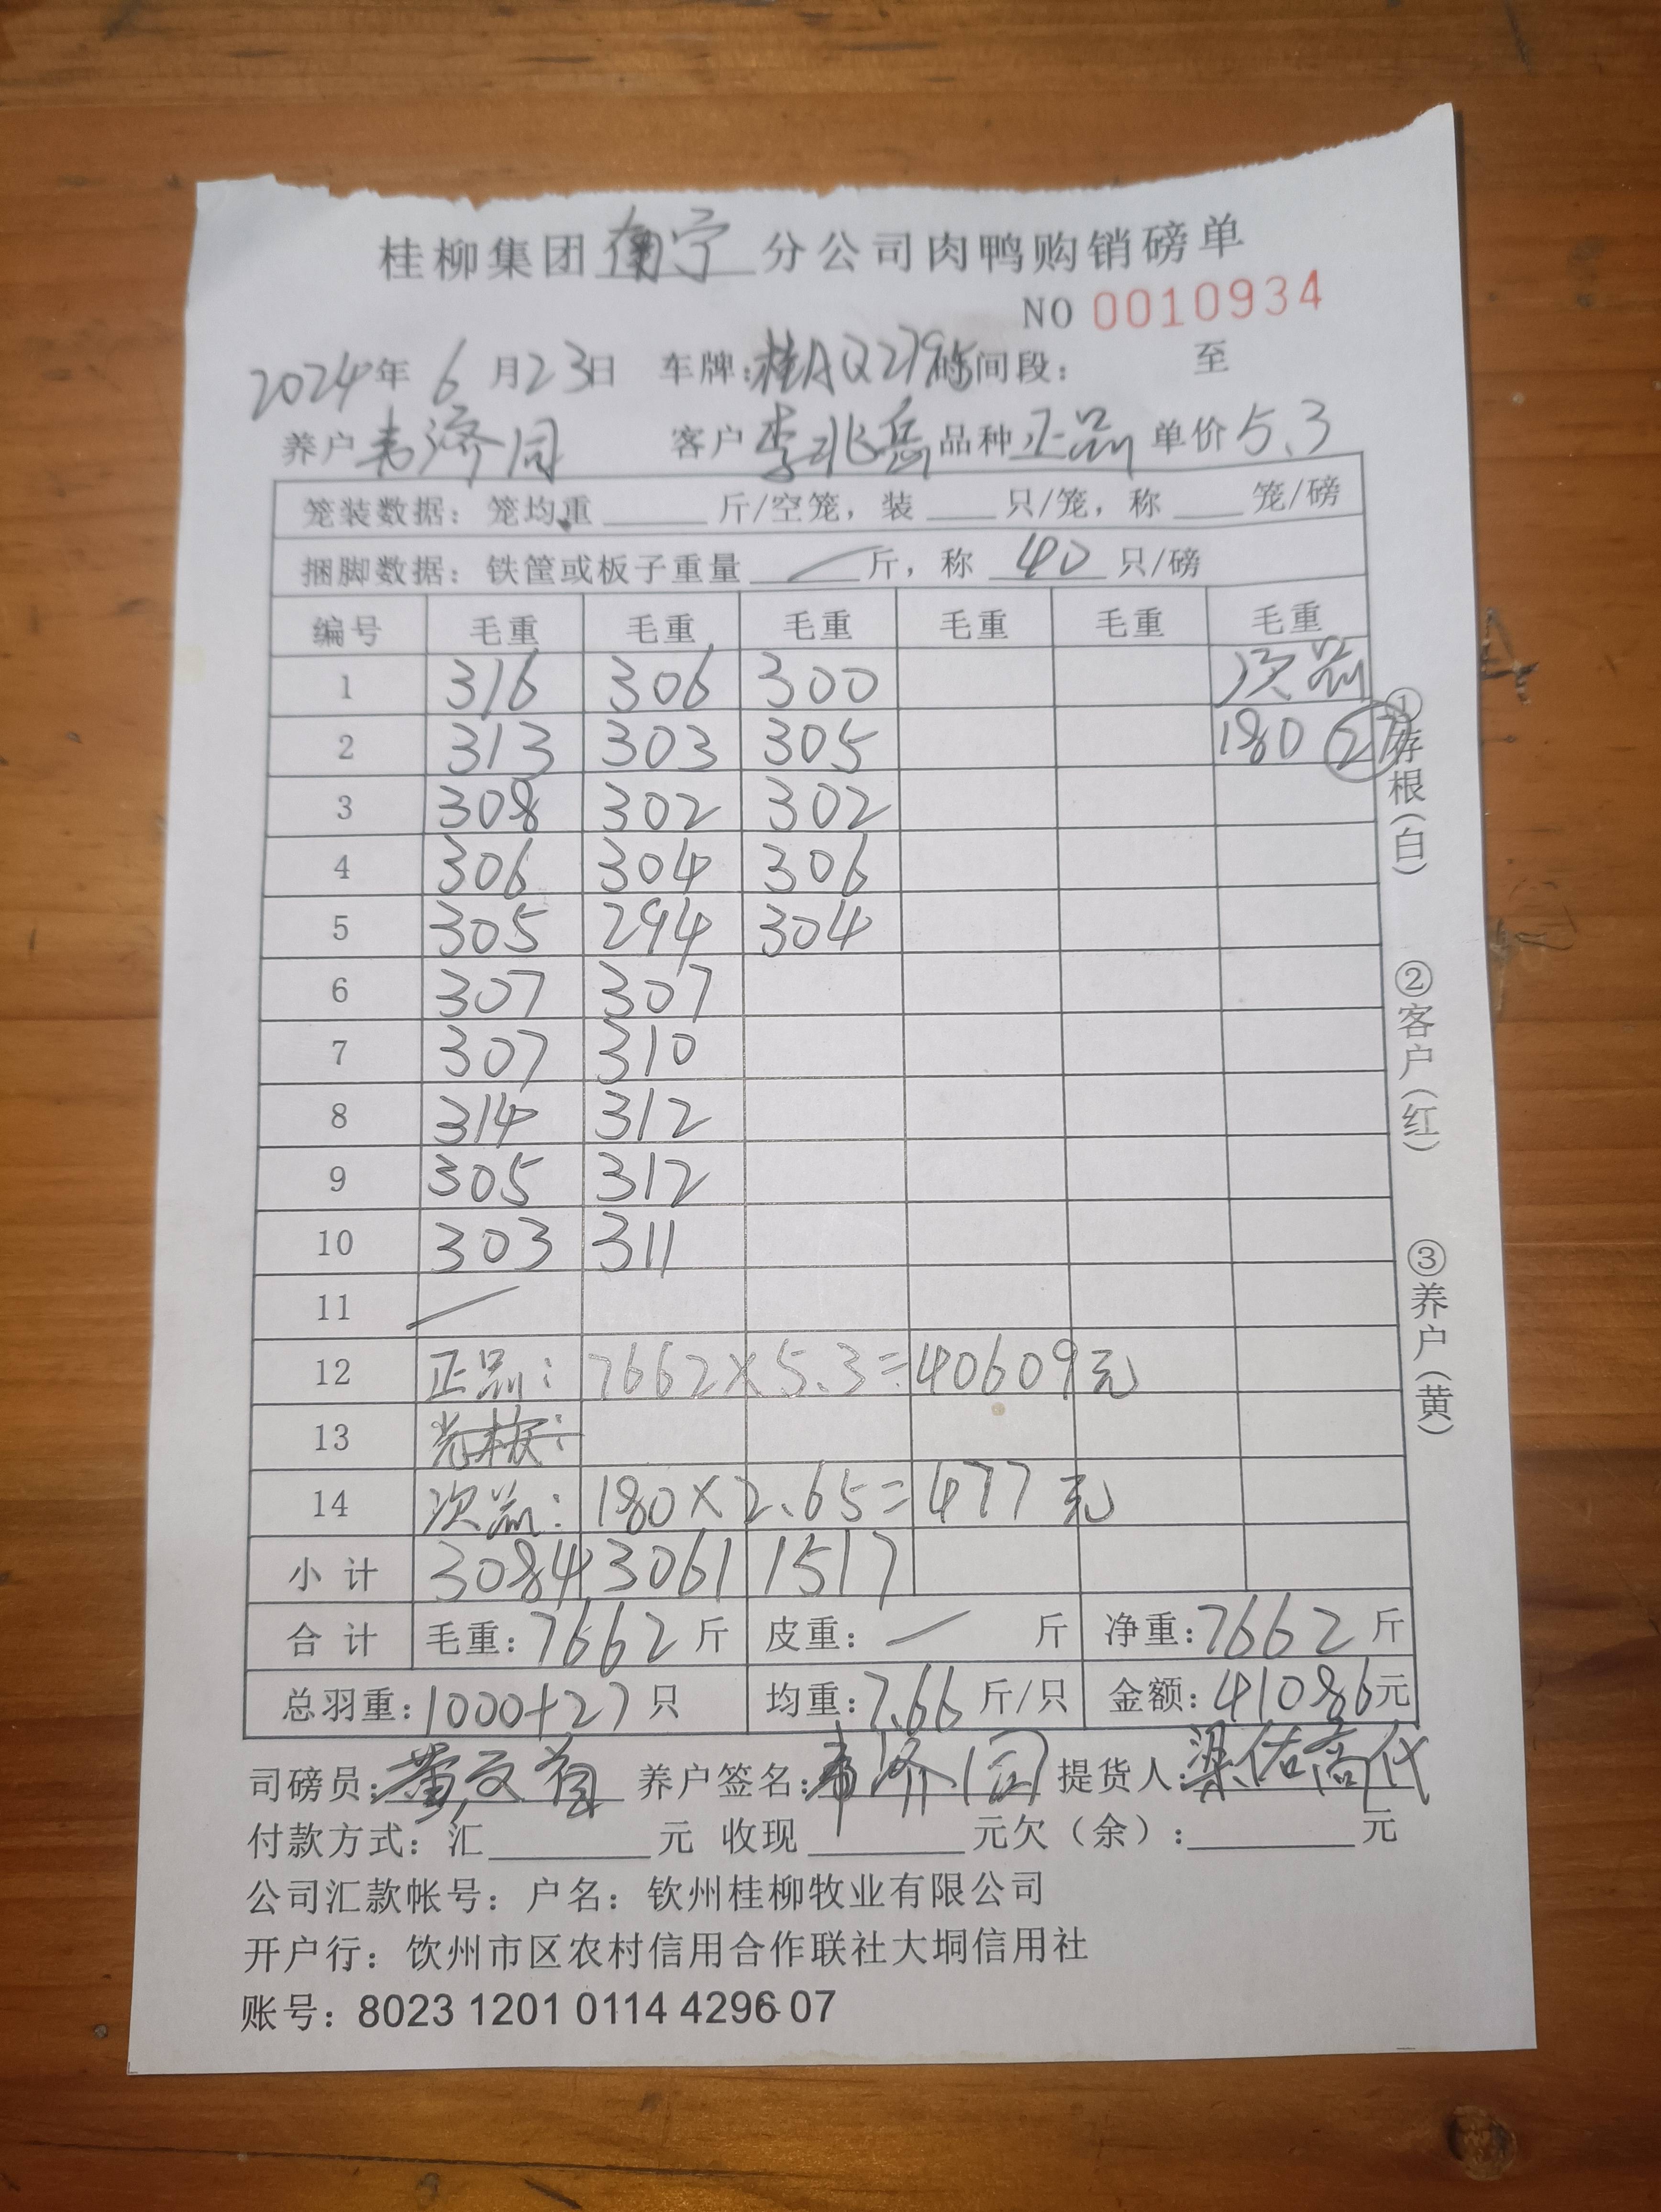 桂柳集团 南宁 分公司肉鸭购销磅单
NO 0010934
2024年 6 月23日 车牌:桂AQ2795 时间段: 至
养户 韦济同 客户 李兆岳 品种 正品 单价 5.3
笼装数据: 笼均重 斤/空笼, 装 只/笼, 称 笼/磅
捆脚数据: 铁筐或板子重量 — 斤, 称 40 只/磅
编号 毛重 毛重 毛重 毛重 毛重 毛重
1 316 306 300 次品
2 313 303 305 180 27
3 308 302 302
4 306 304 306
5 305 294 304
6 307 307
7 307 310
8 314 312
9 305 312
10 303 311
11 —
12 正品: 7662×5.3=40609元
13
14 次品: 180×2.65=477元
小计 3084 3061 1517
合计 毛重: 7662 斤 皮重: — 斤 净重: 7662 斤
总羽重: 1000+27 只 均重: 7.66 斤/只 金额: 41086元
司磅员: 养户签名: 韦济同 提货人:
付款方式: 汇 元 收现 元欠(余): 元
公司汇款帐号: 户名: 钦州桂柳牧业有限公司
开户行: 钦州市区农村信用合作联社大垌信用社
账号: 8023 1201 0114 4296 07
①存根(白)
②客户(红)
③养户(黄)